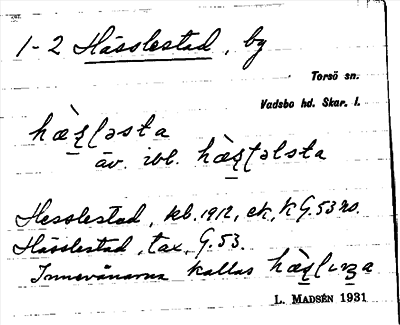 1-2 Hässlestad, by
Torsö sn.
Vadsbo hd. Skar. l.
hæ̀s̱ləsta
äv. ibl. hæ̀s̱təlsta
Hesslestad, kb. 1912, ek, k G. 53 ns.
Hässlestad, tax, G. 53.
Innevånarna kallas hæ̀s̱lıṉa
L. MADSÉN 1931